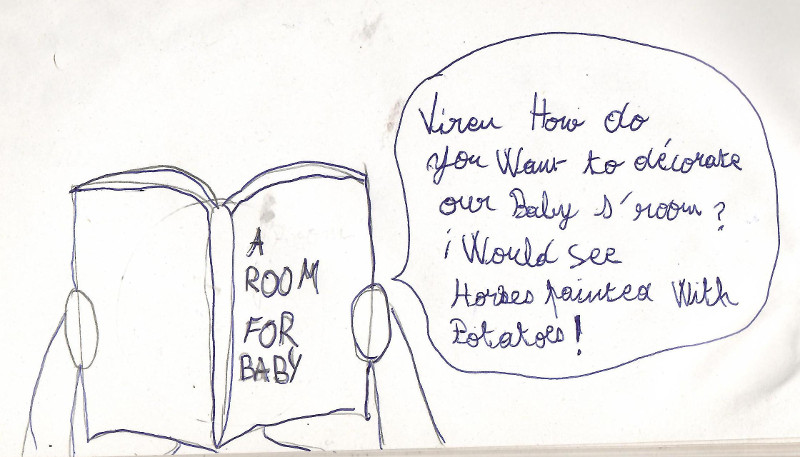 A
ROOM
FOR
BABY
Viren How do
you Want to décorate
our Baby s'room?
i Would see
Horses painted With
Potatoes!